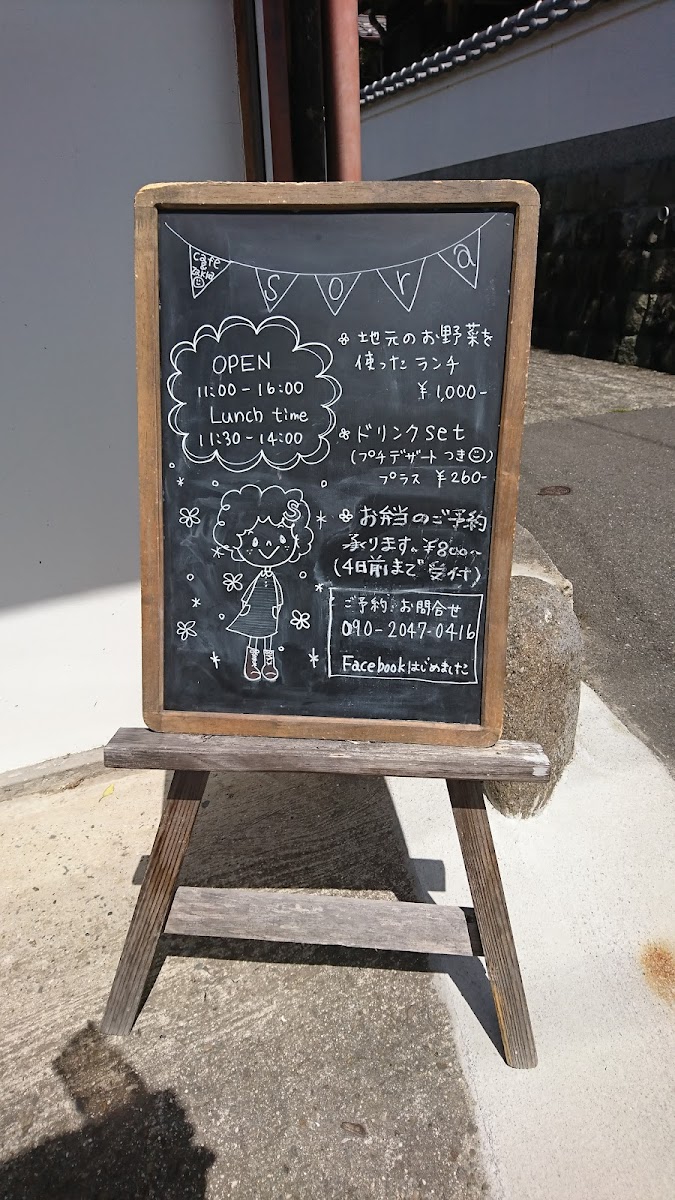 cafe
sora
OPEN
11:00-16:00
Lunch time
11:30-14:00
地元のお野菜を
使ったランチ
¥1,000-
ドリンクset
(プチデザートつき)
プラス ¥260-
お弁当のご予約
承ります。¥800~
(4日前まで受付)
ご予約・お問合せ
090-2047-0416
Facebookはじめました